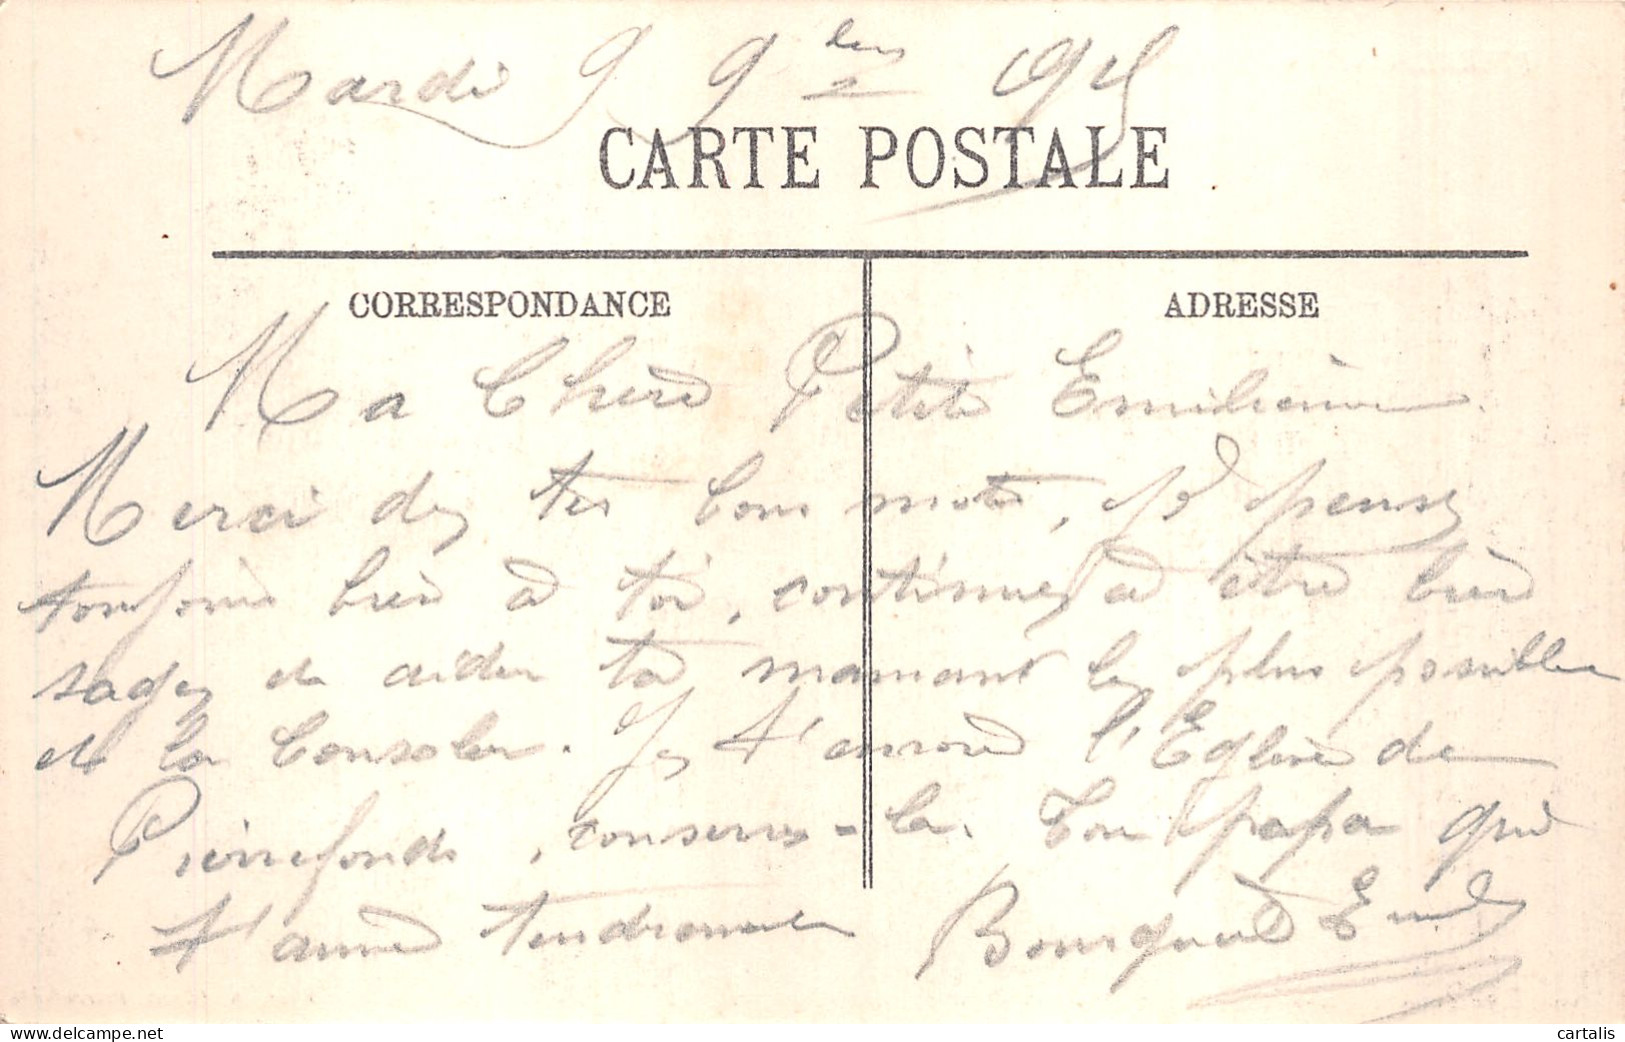 Mardi 9 9bre 1915
CARTE POSTALE
CORRESPONDANCE
ADRESSE
Ma Chère Petite Emilienne
Merci de tes bons mots, je pense
toujours bien à toi, continue à être bien
sage et aider ta maman le plus possible
et la Consoler. Je t'envoie l'Eglise de
Pierrefonds, conserves-la. Ton papa qui
t'aime tendrement Bourguard Emile
cartalis